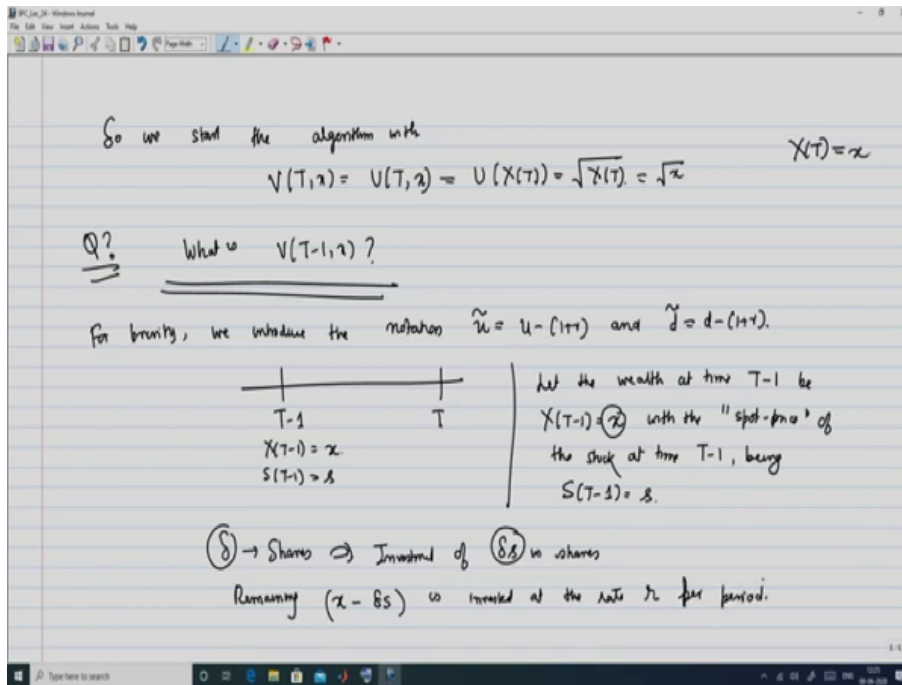 SPC_Lec_24 - Windows Journal
File Edit View Insert Actions Tools Help
Page Width
So we start the algorithm with
V(T,x) = U(T,x) = U(X(T)) = √X(T) = √x
X(T) = x
Q? What is V(T-1,x) ?
For brevity, we introduce the notation ũ = u-(1+r) and d̃ = d-(1+r).
T-1 T
X(T-1) = x
S(T-1) = s
Let the wealth at time T-1 be
X(T-1) = x with the "spot-price" of
the stock at time T-1, being
S(T-1) = s.
δ → Shares ⇒ Investment of δs in shares
Remaining (x - δs) is invested at the rate r per period.
1/1
Type here to search